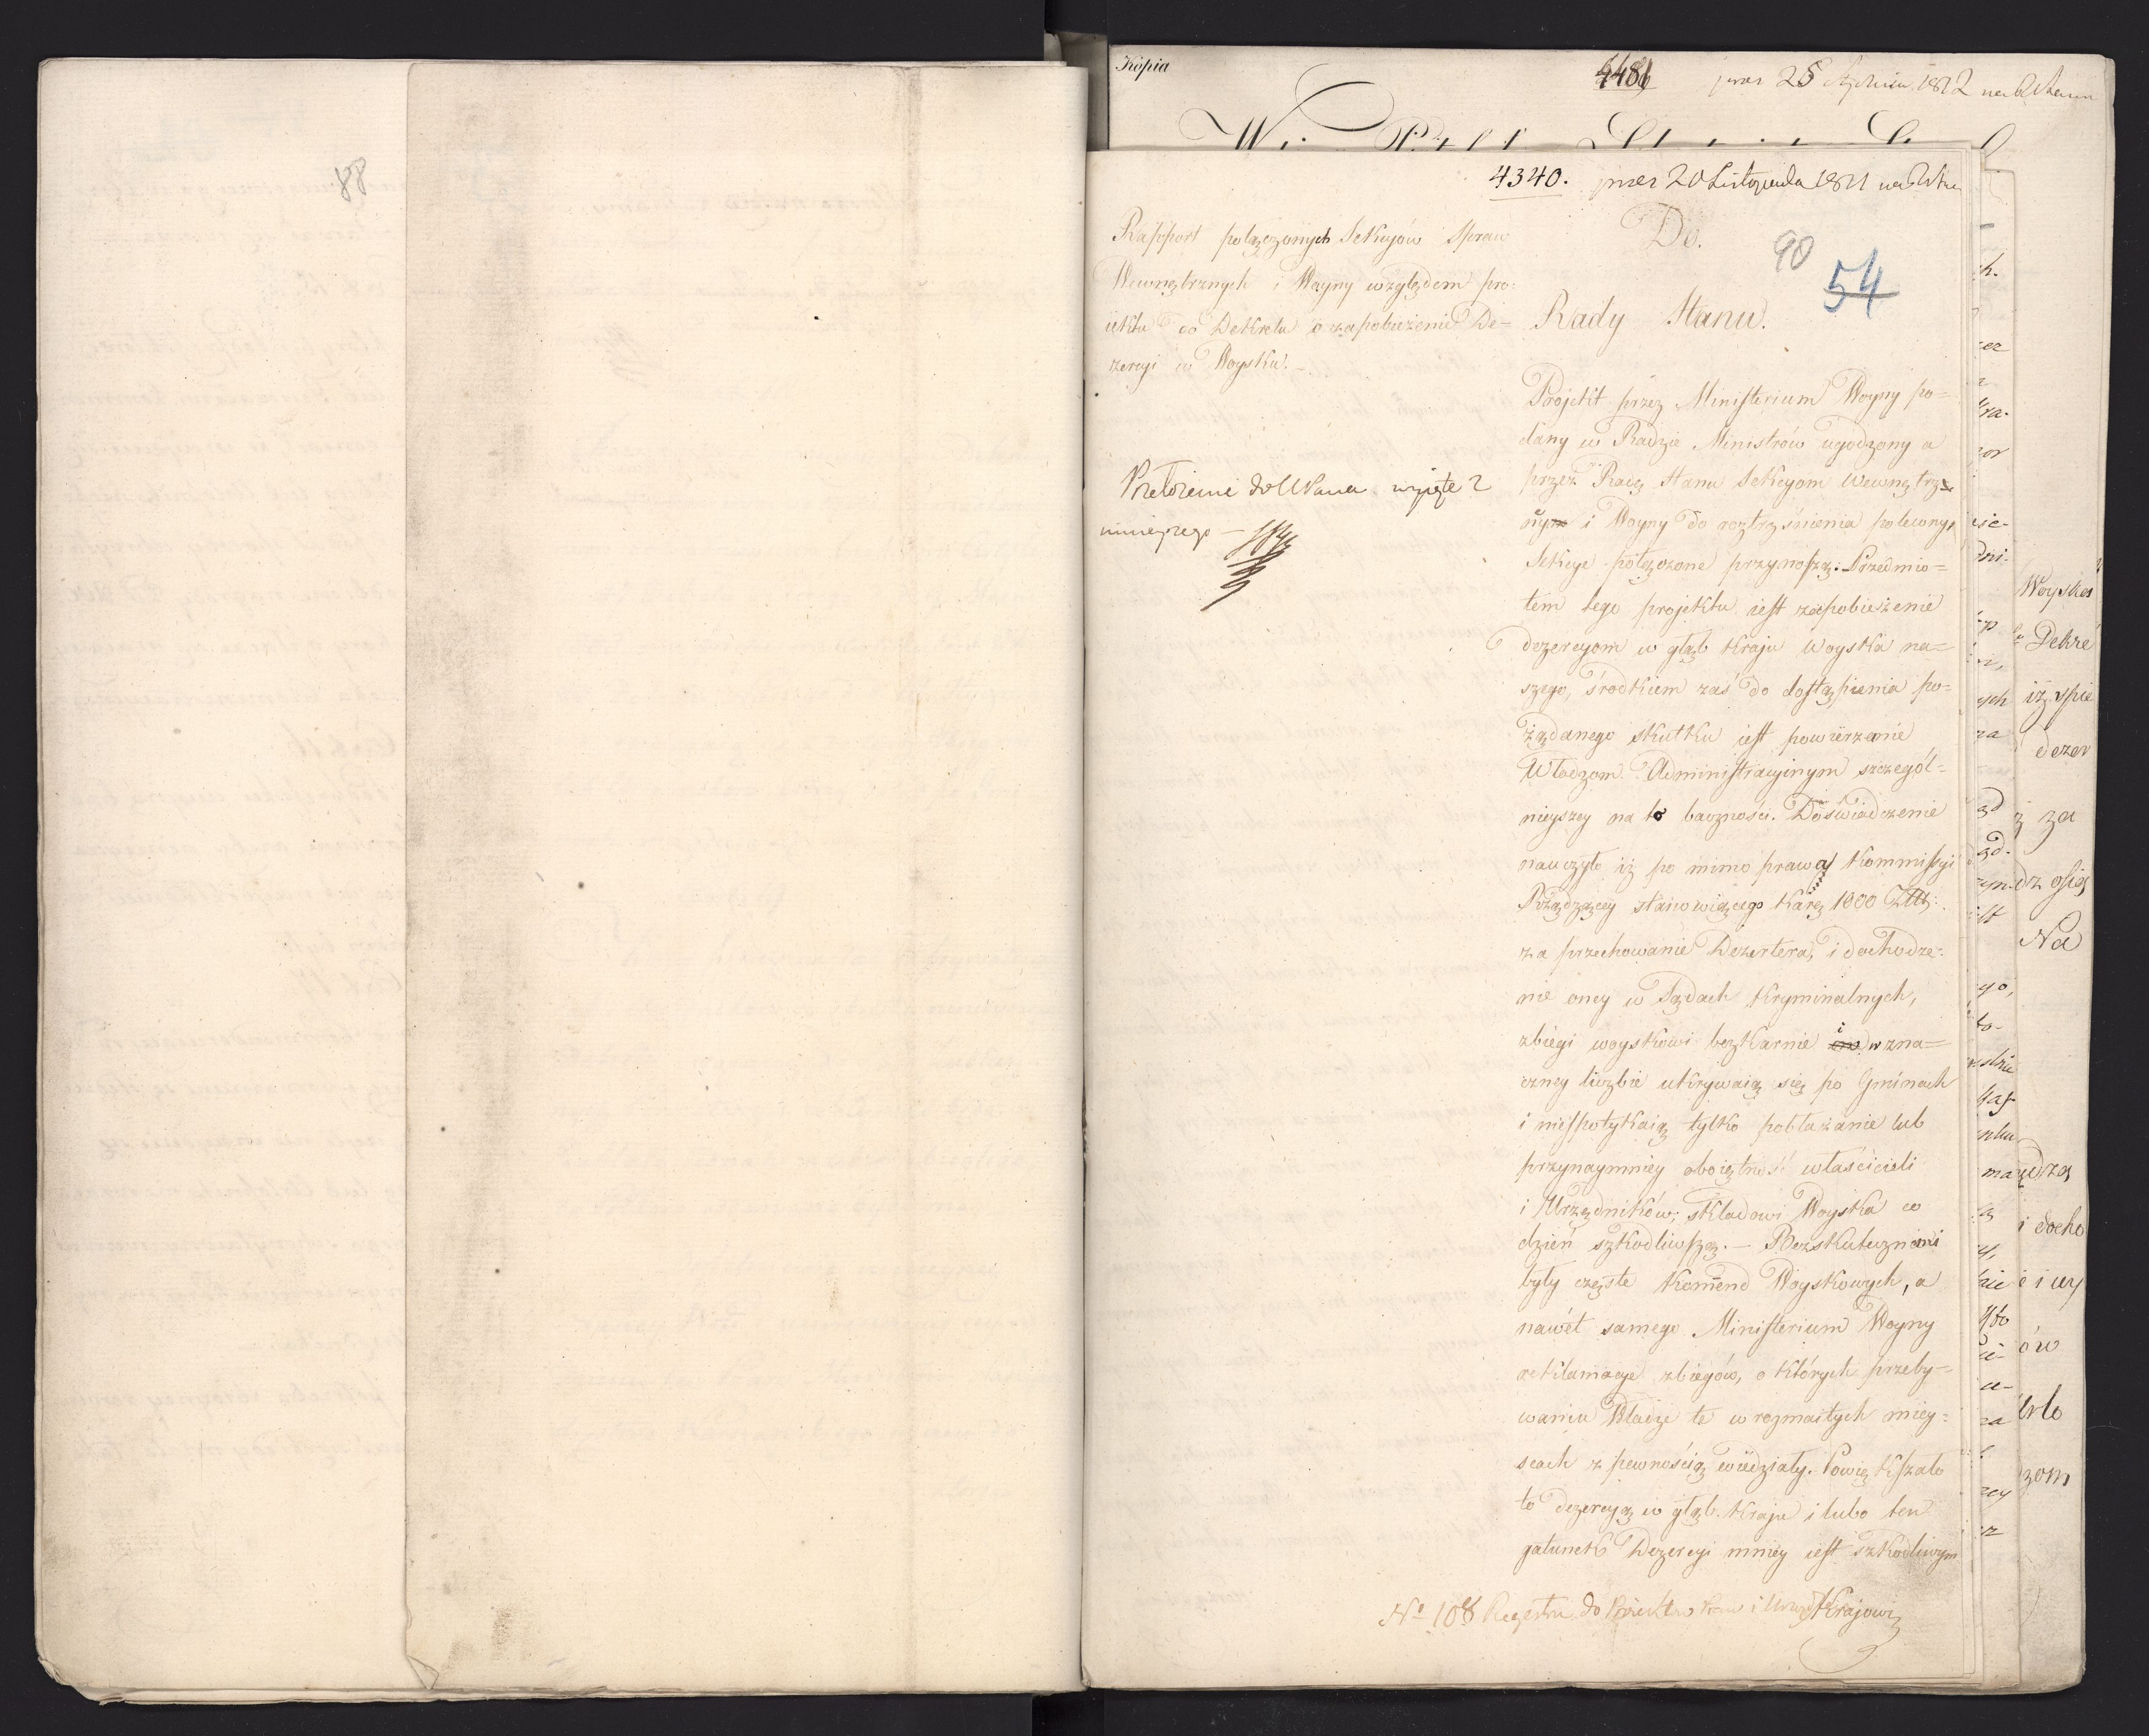 88
Kopia
4486 pres 25 Stycznia 1812
4340. pres 20 Listopada 1811
Rapport połączonych Sekcyów Spraw
Wewnętrznych i Woyny względem pro-
iektu do Dekretu o zapobieżeniu De-
zercyi w Woysku.
ninieyszego —
Do.
90
54
Rady Stanu.
Projekt przez Ministerium Woyny po-
dany w Radzie Ministrów ugodzony a
przez Radę Stanu Sekcyom Wewnętrz-
nym i Woyny do roztrząśnienia polecony,
Sekcye połączone przynoszą. Przedmio-
tem tego projektu iest zapobieżenie
dezercyom w głąb Kraju Woyska na-
szego, środkiem zaś do dostąpienia po-
żądanego skutku iest powierzenie
Władzom Administracyinym szczegól-
nieyszey na to baczności. Doświadczenie
nauczyło iż po mimo prawa Kommissyi
Rządzącey stanowiącego karę 1000 Złt
za przechowanie Dezertera, i dochodze-
nie oney w Sądach Kryminalnych,
zbiegi woyskowi bezkarnie i w zna-
czney liczbie ukrywaią się po Gminach
i niespotykaią tylko pobłażanie lub
przynaymniey oboiętność właścicieli
i Urzędników; składowi Woyska co
dzień szkodliwszą. — Bezskutecznemi
były częste Komend Woyskowych, a
nawet samego Ministerium Woyny
reklamacye zbiegów, o których przeby-
waniu Władze te w rozmaitych miey-
scach z pewnością wiedziały. Powiększało
to dezercyą w głąb Kraju i lubo ten
gatunek Dezercyi mniey iest szkodliwym
Krajowi
No 108 Regestru do Proiektów Praw i Urząd
Woysko
Dekre
iż spie
dezer
ż za
dz osią
Na
i docho
ów
zom